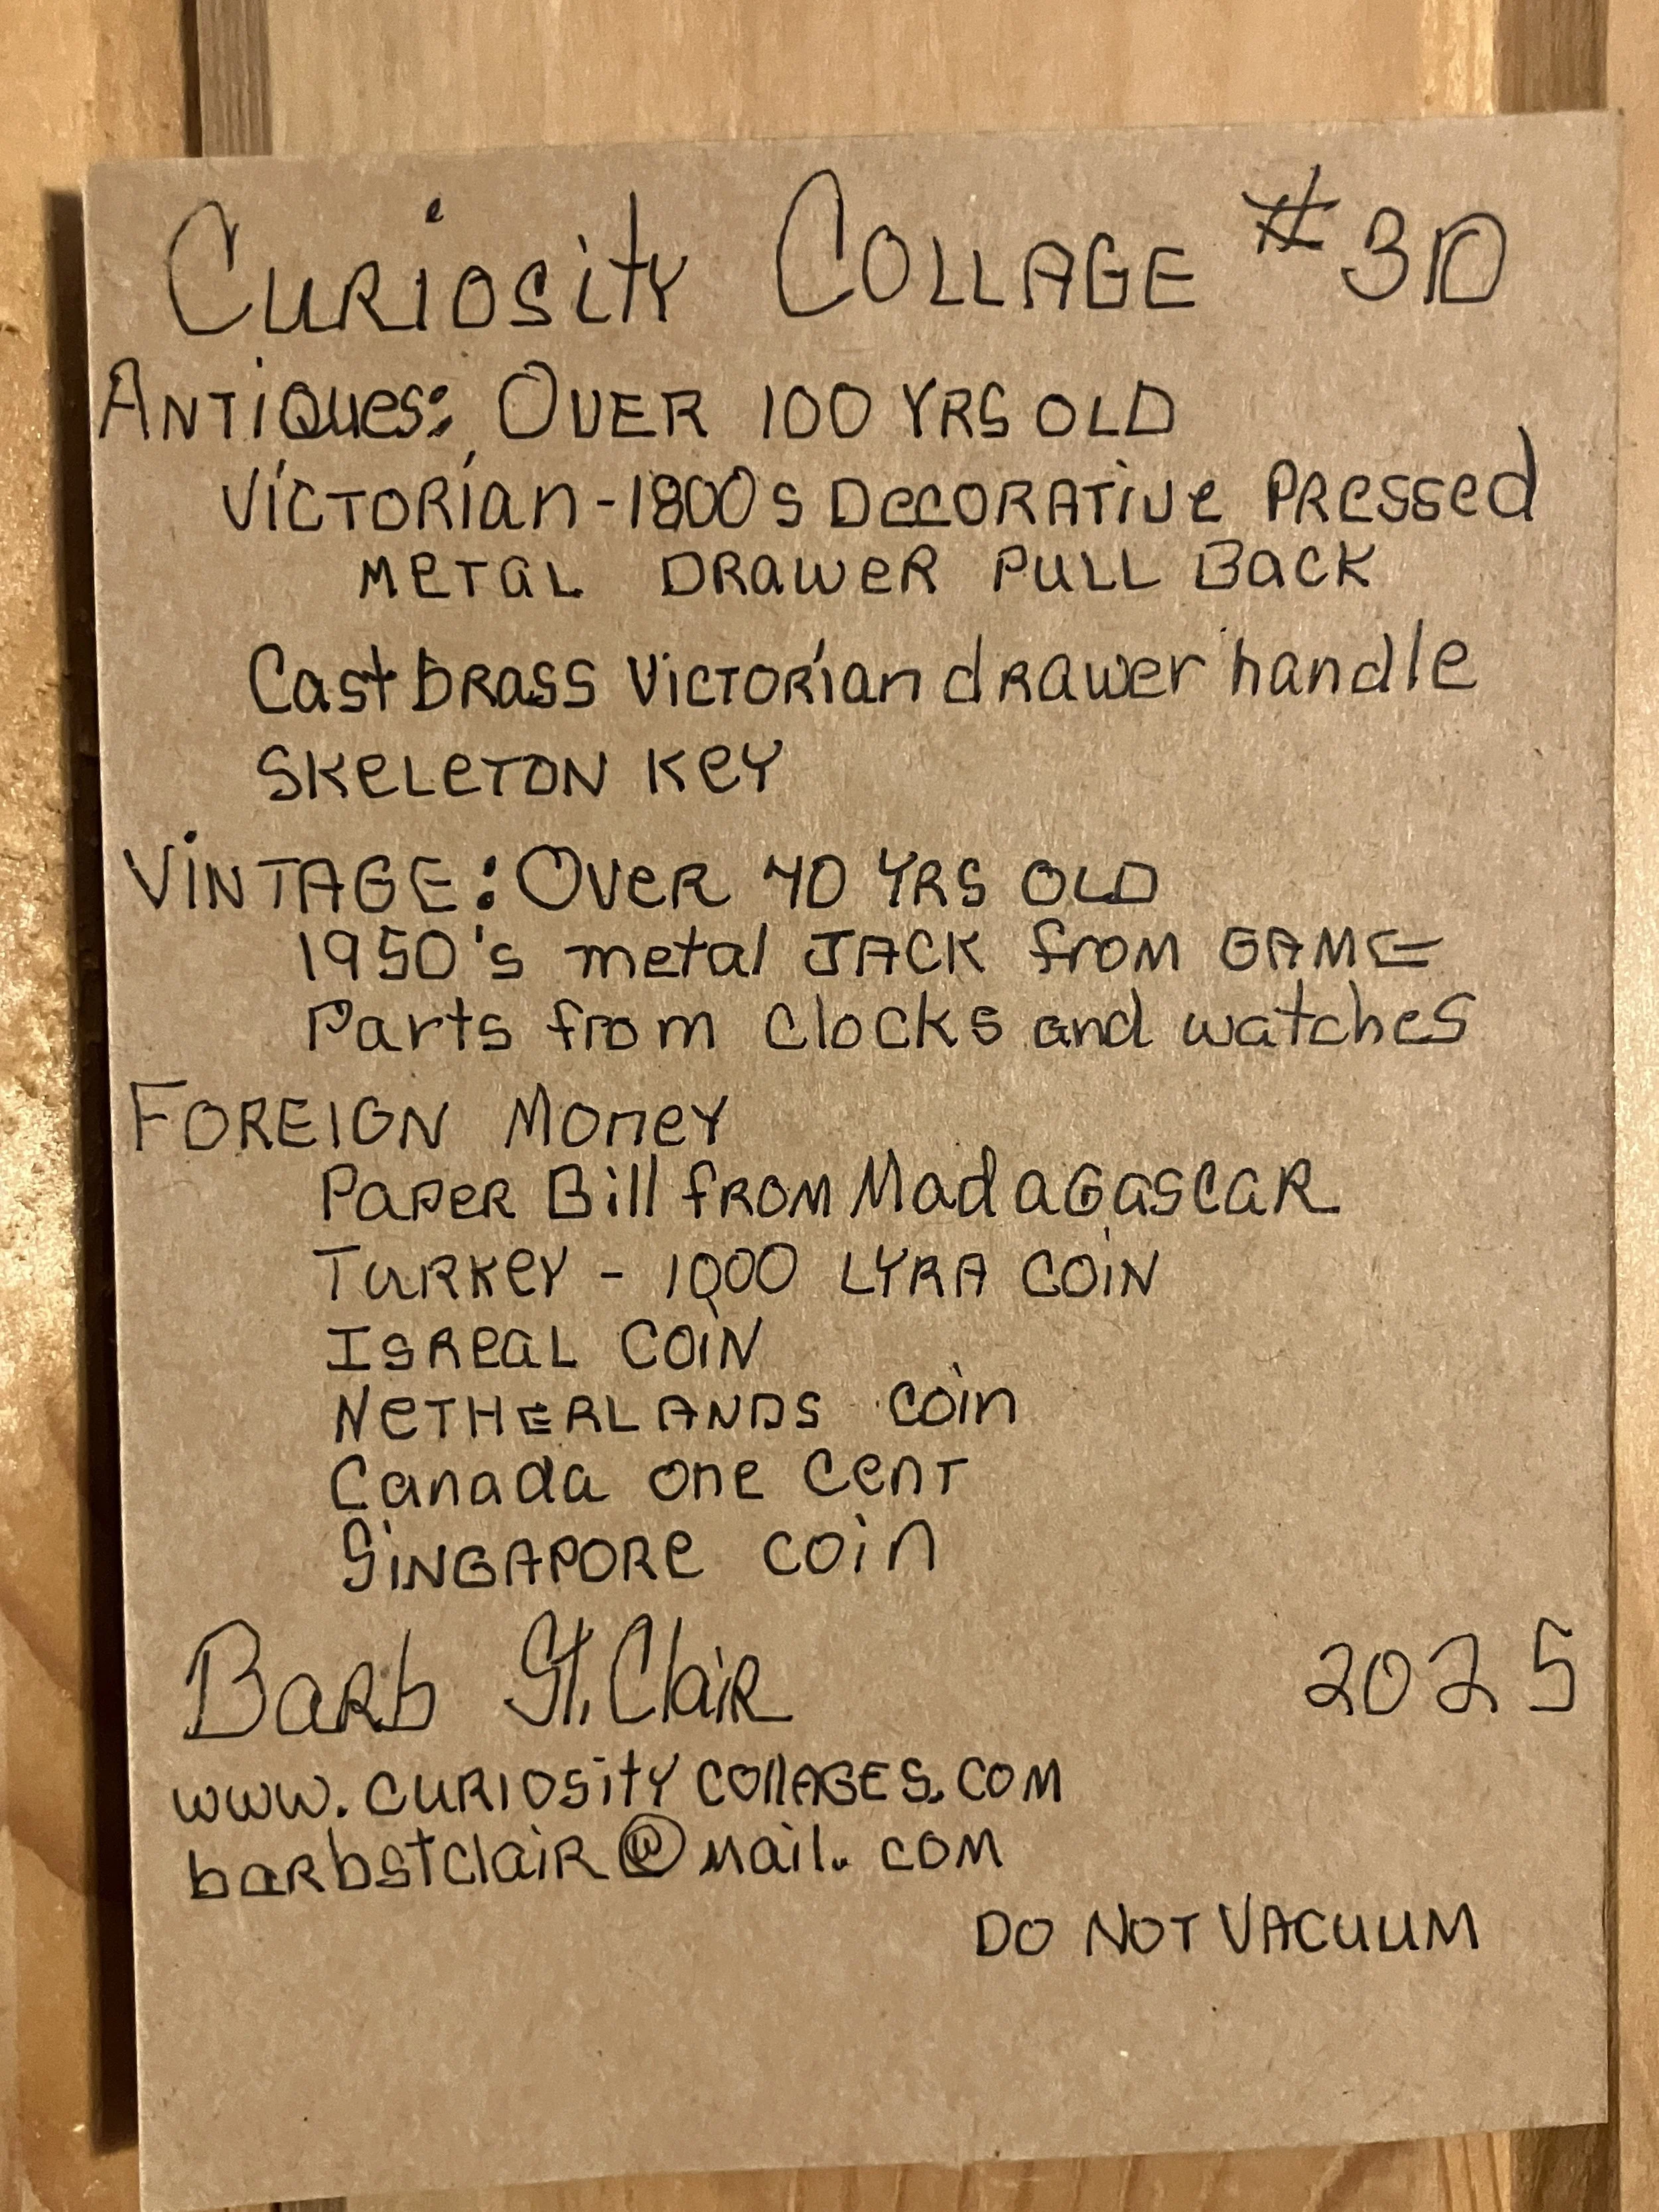 Curiosity Collage #30
Antiques: Over 100 yrs old
Victorian - 1800s Decorative Pressed
Metal Drawer Pull Back
Cast brass Victorian drawer handle
Skeleton Key
Vintage: Over 40 yrs old
1950's metal Jack from Game
Parts from Clocks and watches
Foreign Money
Paper Bill from Madagascar
Turkey - 1000 Lyra coin
Isreal coin
Netherlands coin
Canada one cent
Singapore coin
Barb St. Clair 2025
www.curiositycollages.com
barbstclair@mail.com
Do Not Vacuum